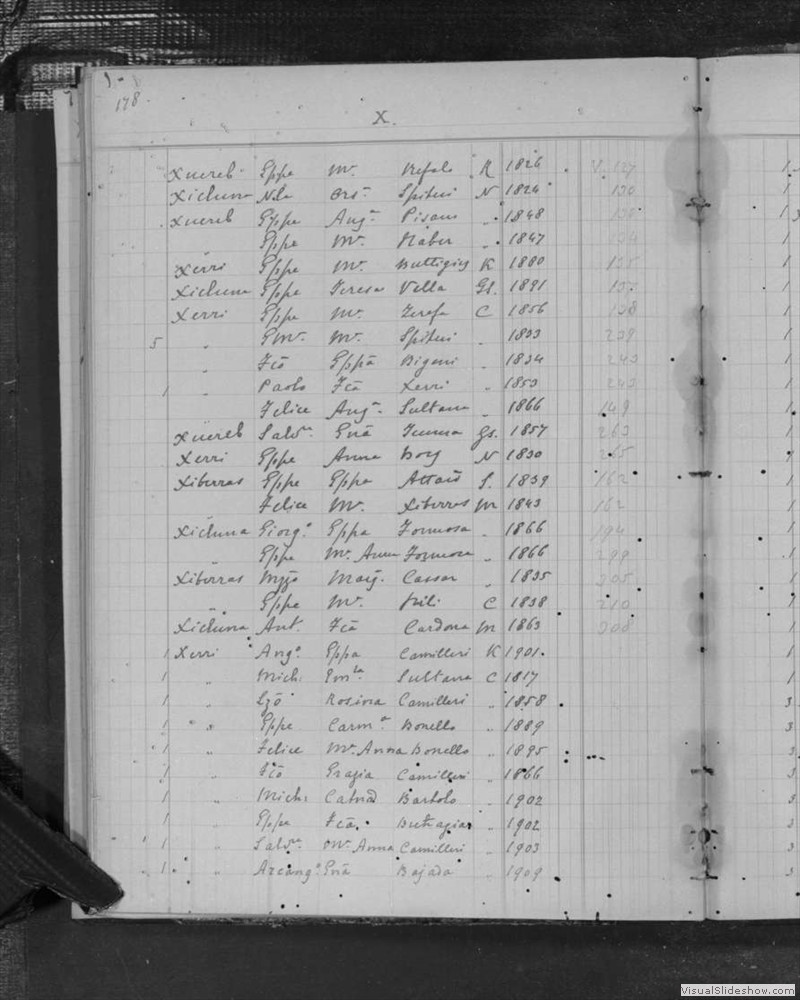 178.
X.
Xuereb Gppe Mª. Refalo R 1826 V. 127
Xicluna Nla Orsª. Spiteri N 1824 130
Xuereb Gppe Angª. Pisani " 1848
Gppe Mª. Haber " 1847
Xerri Gppe Mª. Buttigieg K 1880 135
Xicluna Gppe Teresa Vella Gs. 1891
Xerri Gppe Mª. Zerafa C 1856 138
5 " Emª. Mª. Spiteri " 1833 239
" Fcõ Gppã Bigeni " 1834 243
1 " Paolo Fcã Xerri " 1853 243
Felice Angª. Sultana " 1866 149
Xuereb Salvʳᵉ Gnã Gs. 1857 263
Xerri Gppe Anna Borg N 1830 265
Xiberras Gppe Gppa Attard S. 1839 162
Felice Mª. Xiberras M 1843 162
Xicluna Giorgº Gppa Formosa " 1866 194
Gppe Mª. Anna Formosa " 1866 299
Xiberras Marg. Cassar " 1835 305
" Gppe Mª. C 1838 210
Xicluna Ant. Fcã Cardona M 1863 308
1 Xerri Angº Gppa Camilleri K 1901
1 " Mich: Emˡᵃ Sultana C 1817
1 " Gzõ Rosina Camilleri " 1858 3
1 " " Gppe Carmª Bonello " 1889 3
1 " Felice Mª. Anna Bonello " 1895 3
1 " Fcõ Grazia Camilleri " 1866 3
1 " Mich: Catnã Bartolo " 1902 3
1 " Gppe Fcã Buttagiar " 1902 3
1 " Salvʳᵉ Mª. Anna Camilleri " 1903 3
1 " Arcangº Gnã Bajada " 1909 3
VisualSlideshow.com